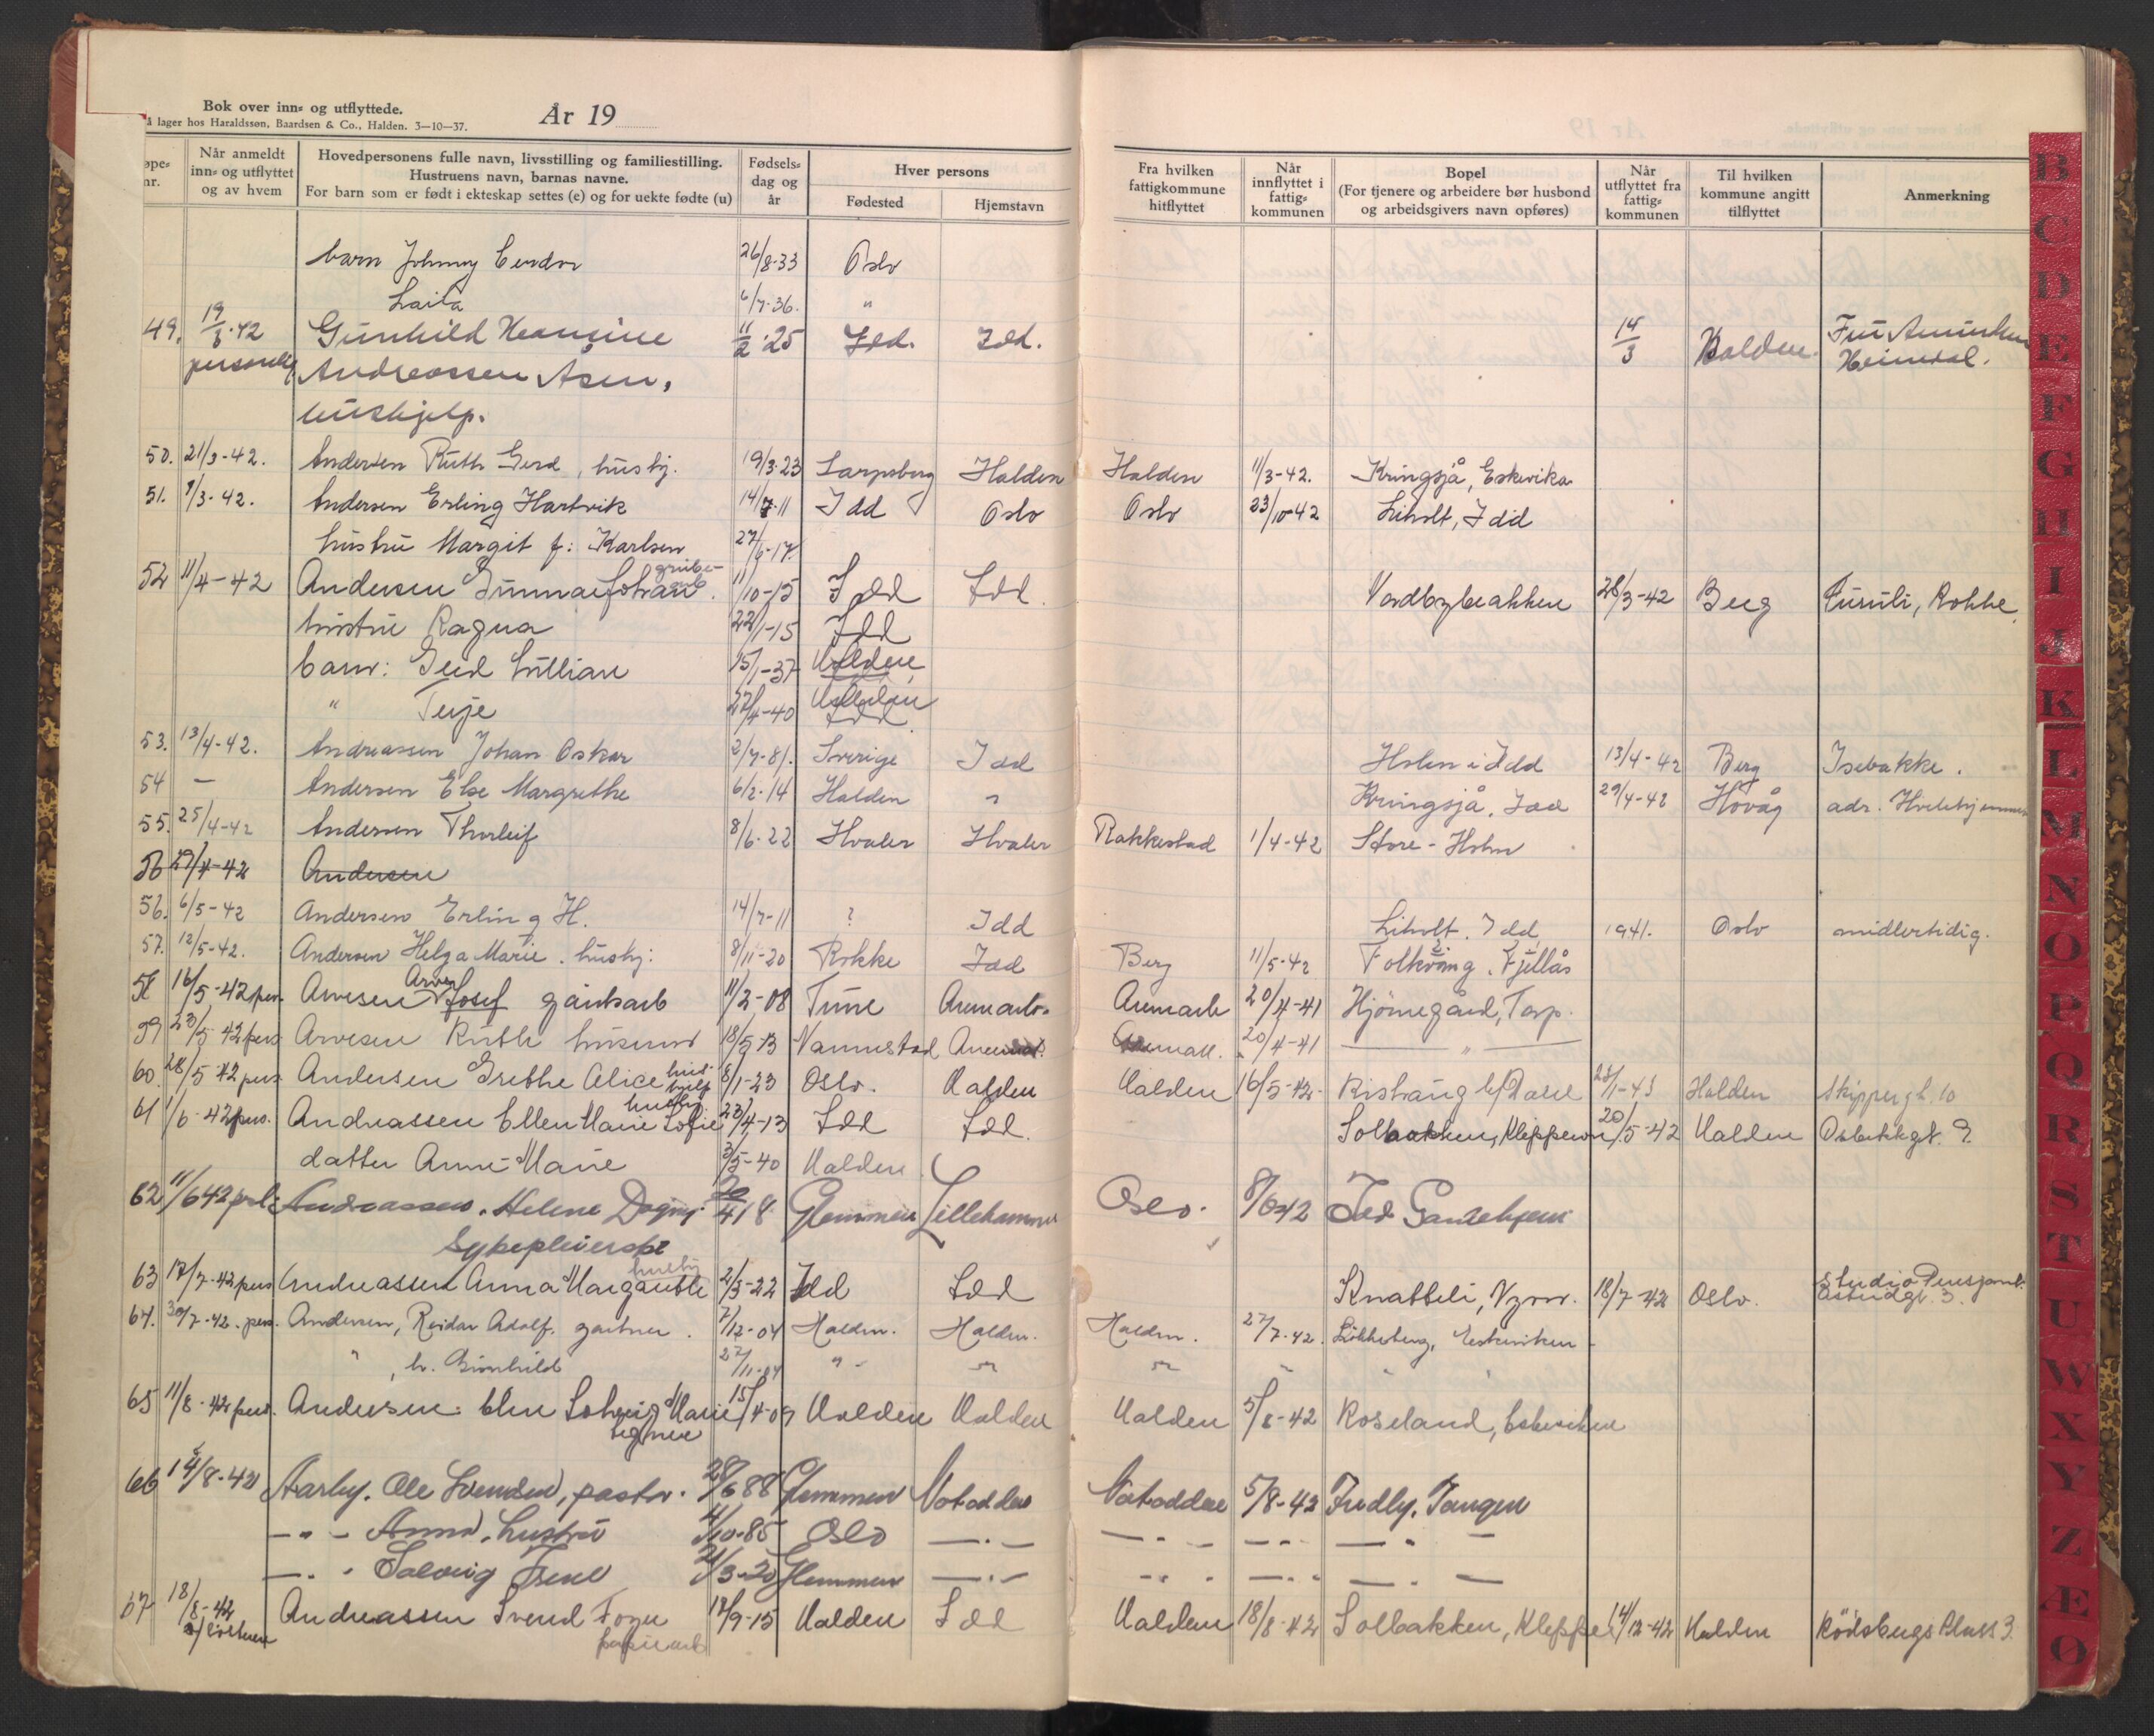 Bok over inn- og utflyttede.
å lager hos Haraldssøn, Baardsen & Co., Halden. 3—10—37.
År 19
øpe-nr. Når anmeldt inn- og utflyttet og av hvem Hovedpersonens fulle navn, livsstilling og familiestilling. Hustruens navn, barnas navne. For barn som er født i ekteskap settes (e) og for uekte fødte (u) Fødsels-dag og år Hver persons Fødested Hjemstavn Fra hvilken fattigkommune hitflyttet Når innflyttet i fattig-kommunen Bopel (For tjenere og arbeidere bør husbond og arbeidsgivers navn opføres) Når utflyttet fra fattig-kommunen Til hvilken kommune angitt tilflyttet Anmerkning
barn Johnny 26/8-33 Oslo
Laila 6/7-36. "
49. 19/3-42 Gunhild 11/2-25 Idd. Idd. 14/3 Halden. Fru
personlig Andreassen Åsen, Heimdal.
hushjelp.
50. 21/3-42. Andersen Ruth Gerd, hushj. 19/3-23 Sarpsborg Halden Halden 11/3-42. Kringsjå, Eskevika
51. 9/3-42. Andersen Erling Hartvik 14/7-11 Idd Oslo Oslo 23/10-42 Liholt, Idd
hustru Margit f: Karlsen 27/6-17.
52 11/4-42 Andersen Gunnar Johan 11/10-15 Idd Idd. 28/3-42 Berg Rokke
hustru Ragna 22/1-15 Idd
barn: Gerd Lillian 15/1-37 Halden
" Terje 27/4-40 Halden
53. 13/4-42. Andreassen Johan Oskar 2/7-81. Sverige Idd Holm i Idd 13/4-42 Berg Isebakke.
54 — Andersen Else Margrethe 6/2-14 Halden " Kringsjå, Idd 29/4-42 Høvåg adr. Hvilehjemmet
55. 25/4-42 Andersen Thorleif 8/6-22 Hvaler Hvaler Rakkestad 1/4-42 Store-Holm
56 27/4-42 Andersen
56. 6/5-42 Andersen Erling H. 14/7-11 ? Idd Liholt, Idd 1941. Oslo midlertidig.
57. 12/5-42. Andersen Helga Marie. hushj: 8/11-20 Rokke Idd Berg 11/5-42 Folkvang, Fjellås
58 16/5-42 pers. Arvesen Arven Josef 11/2-08 Tune Aremark. Aremark 20/4-41 Torp.
59 23/5-42 pers Arvesen Ruth husmor 18/5-13 Vannestad Aremark. Aremark. 20/4-41 — " —
60. 28/5-42 pers Andersen Grethe Alice hushjelp 8/1-23 Oslo. Halden Halden 16/5-42- 28/1-43 Halden Skippergt. 10
61 1/6-42 pers. Andreassen Ellen Marie Sofie hushj 23/4-13 Idd Idd. Solbakken, Kleppern 20/5-42 Halden Osbekkgt. 9
datter Anne-Marie 3/5-40 Halden
62 11/6 42 Andreassen. Helene Dagny 20/4 18 Glemmen Lillehammer Oslo. 8/6-42 Idd Gamlehjem
Sykepleierske
63 17/7-42 pers Andreassen Anna Margarethe hushj 2/3-22 Idd Idd Knatteli, 18/7-42 Oslo. Studio Pensjonat.
64. 30/7-42. pers. Andersen, Reidar Adolf. gartner. 7/12-04 Halden. Halden. Halden. 27/7-42. Eskeviken -
" , h. Gunhild 27/11-04 " - " "
65 11/8-42 pers. Andersen: Elna Solveig Marie 15/4-09 Halden Halden Halden 5/8-42 Roseland, Eskeviken
66 14/8-42 Aarby. Ole Svendsen, pastor. 28/6 88 Glemmen Notodden Notodden 5/8-42 Fredly. Tangen
— " — Anna, hustru 4/10-85 Oslo — . —
— " - Solveig Irene 21/3-20 Glemmen — . —
67 18/8-42 Andreassen Svend 12/9-15 Halden Idd Halden 18/8-42 Solbakken, Kleppe 14/12-42 Halden Rödsbergs Plass 3.
papirarb
B
C
D
E
F
G
H
I
J
K
L
M
N
O
P
Q
R
S
T
U
W
X
Y
Z
Æ
Ø